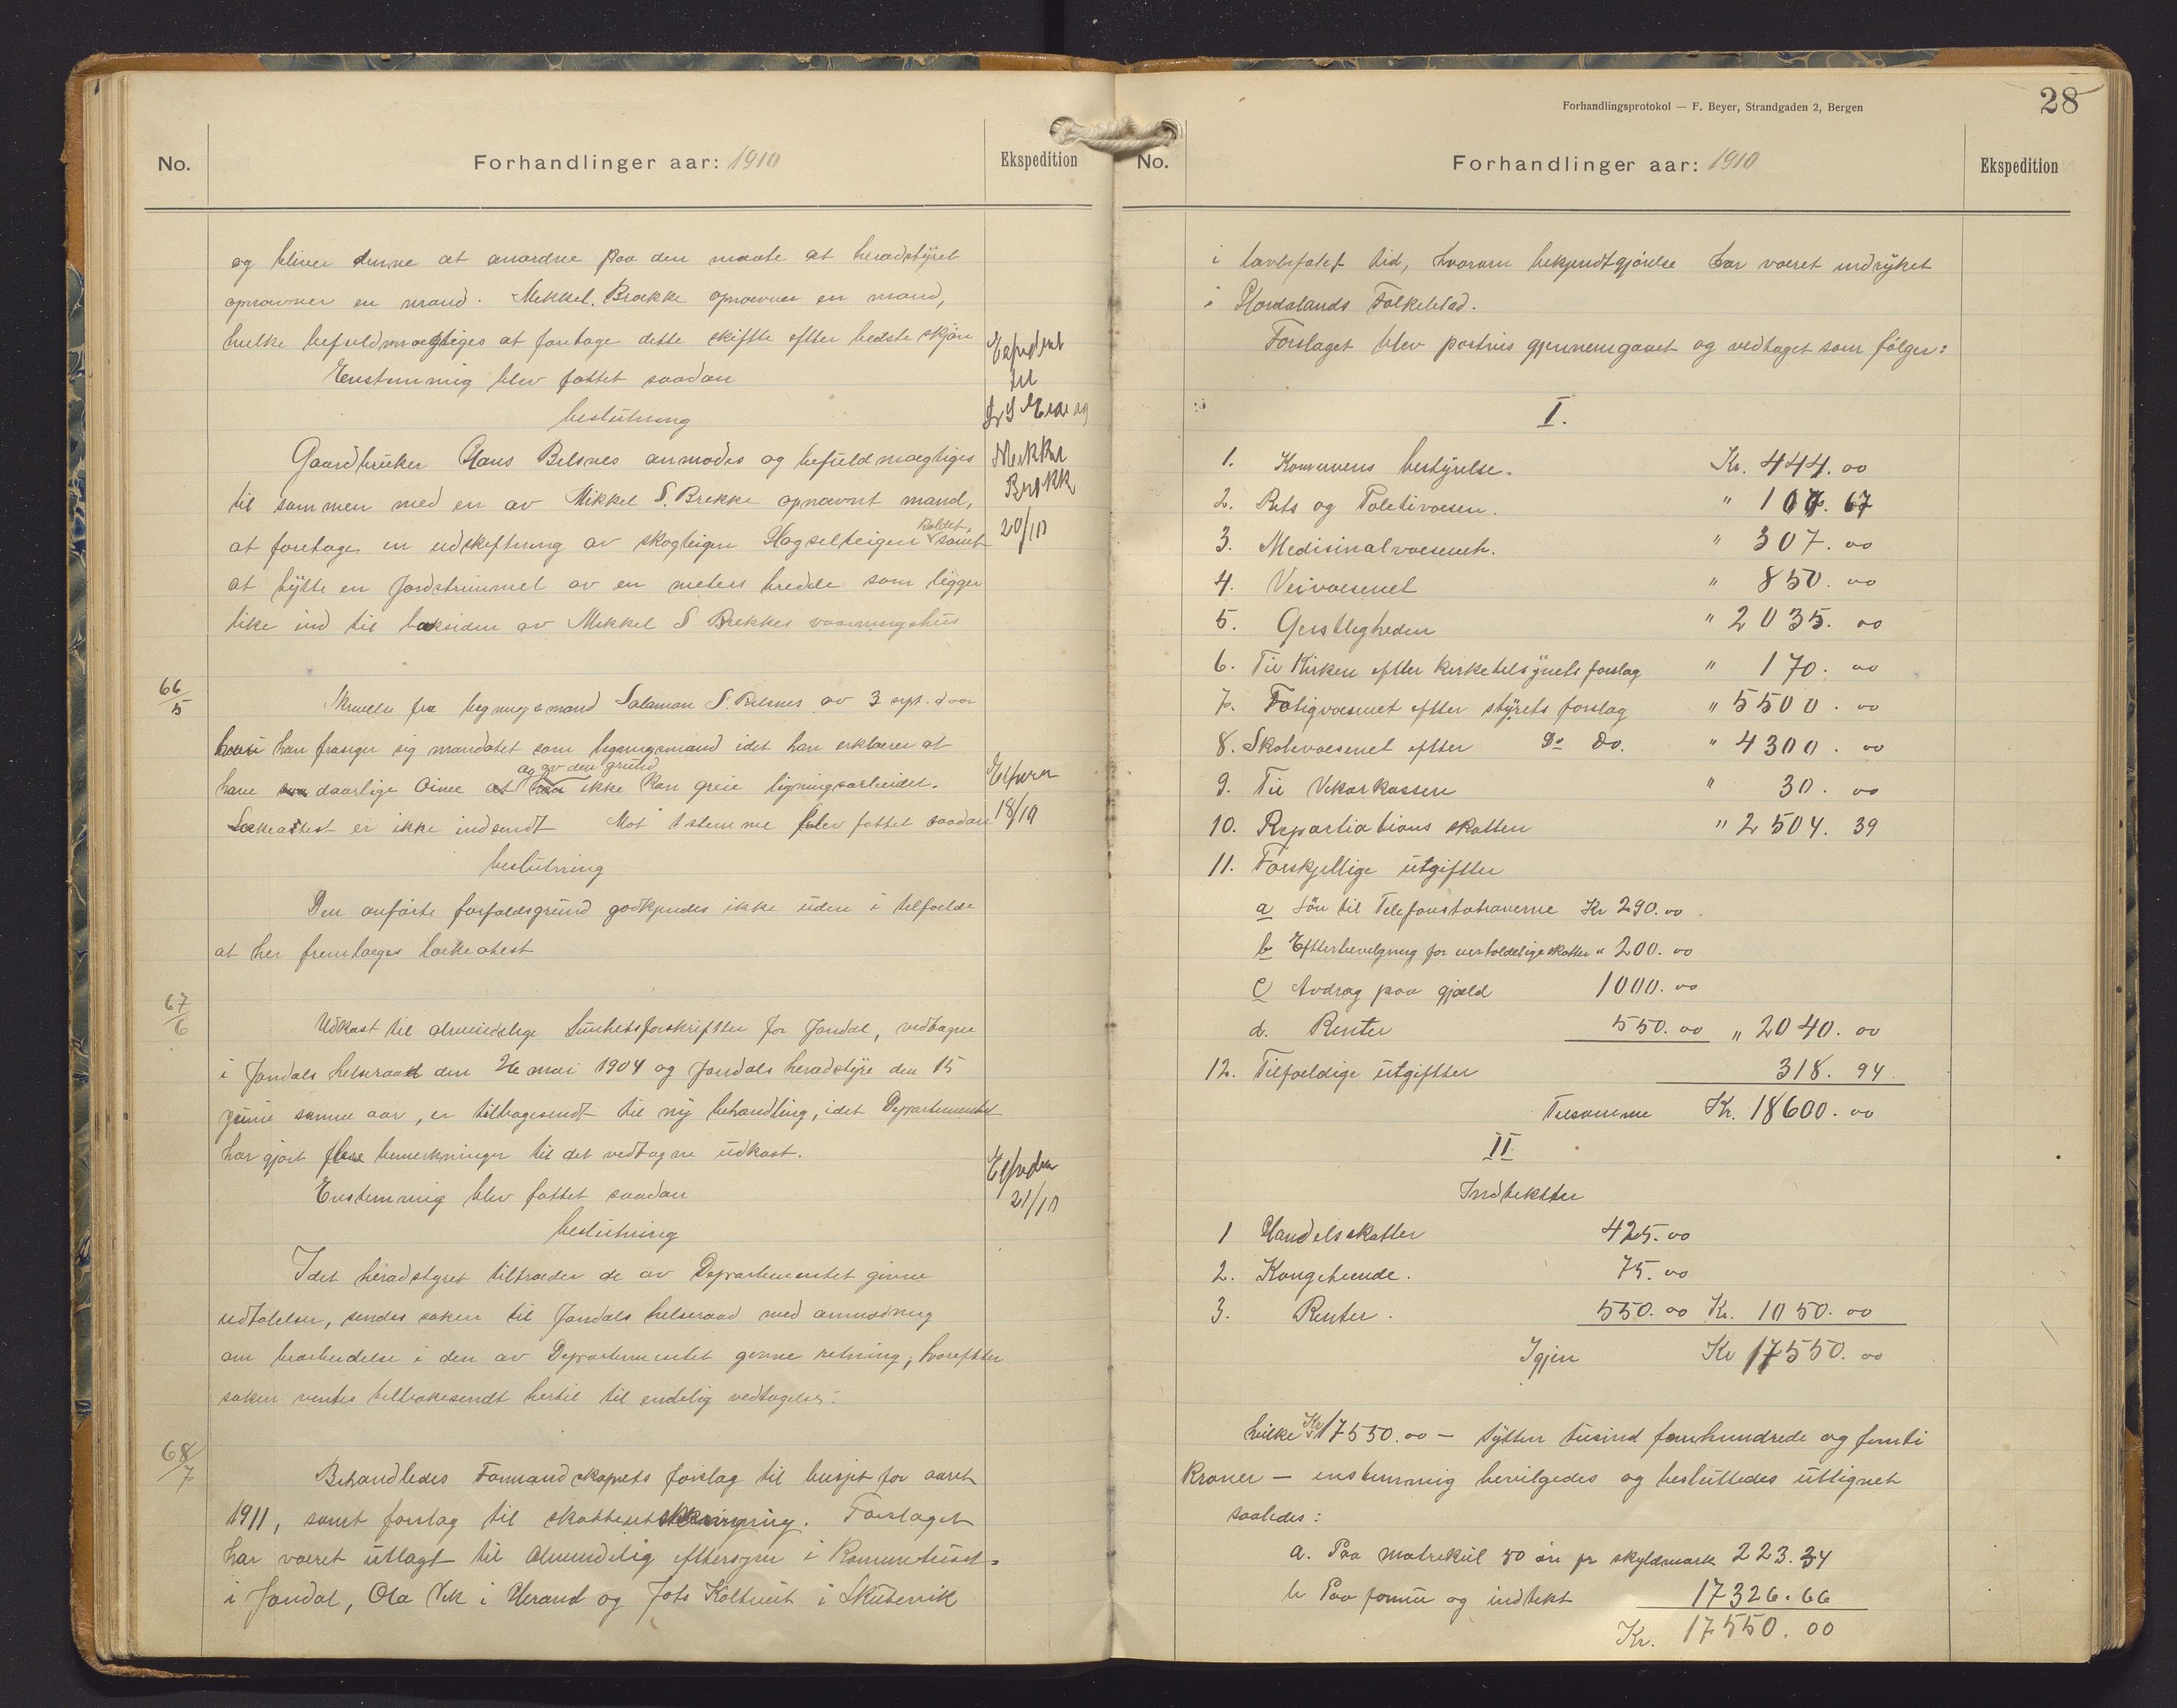 No.
Forhandlinger aar: 1910
Ekspedition
og bliver denne at anordne paa den maate at heradstyret
opnævner en mand. Mikkel Brække opnævner en mand,
hvilke befuldmægtiges at foretage dette skifte efter bedste skjøn
Enstemmig blev fattet saadan
beslutning
Gaardbruker Hans Belsnes anmodes og befuldmægtiges
til sammen med en av Mikkel S. Brekke opnævnt mand,
at foretage en udskiftning av skogteigen Hagselteigen kaldet, samt
at bytte en Jordstrimmel av en meters bredde som ligger
like ind til baksiden av Mikkel S Brekkes vaaningshus
Expedert
til
Mikkel
Brekk
20/10
66/5
Skrivelse fra ligningsmand Salamon S. Belsnes av 3 sept. d aar
hvori han frasiger sig mandatet som ligningsmand idet han erklærer at
have daarlige øine og av den grund ikke kan greie ligningsarbeidet.
Lækeattest er ikke indsendt Mot 1 stemme blev fattet saadan
18/10
beslutning
Den anførte forfaldsgrund godkjendes ikke uden i tilfælde
at her fremlægges lækeatest
67/6
Udkast til almindelige Sundhetsforskrifter for Jondal, vedtagne
i Jondals helseraad den 26 mai 1904 og Jondals heradstyre den 15
juni samme aar, er tilbagesendt til ny behandling, idet Departementet
har gjort flere bemerkninger til det vedtagne udkast.
Enstemmig blev fattet saadan
Expeder
21/10
beslutning
Idet heradstyret tiltræder de av Departementet givne
udtalelser, sendes saken til Jondals helseraad med anmodning
om bearbeidelse i den av Departementet givne retning, hvorefter
saken ventes tilbakesendt hertil til endelig vedtagelse.
68/7
Behandledes Formandskapets forslag til busjet for aaret
1911, samt forslag til skatteutskrivning. Forslaget
har været utlagt til almindelig eftersyn i Komunehuset
i Jondal, Ola Vik i Herand og Jots Koltveit i Skutevik
Forhandlingsprotokol — F. Beyer, Strandgaden 2, Bergen
28
No.
Forhandlinger aar: 1910
Ekspedition
i lovbefalet tid, hvorom bekjendtgjørelse har været indrykket
i Hordalands Folkeblad.
Forslaget blev postvis gjennemgaaet og vedtaget som følger:
I.
1. Komunens bestyrelse. Kr. 444.00
2. Rets og Politivæsen. " 100.67
3. Medisinalvæsenet. " 307.00
4. Veivæsenet " 850.00
5. Geistligheden " 2035.00
6. Til Kirken efter kirketilsynets forslag " 170.00
7. Fatigvæsenet efter styrets forslag " 5500.00
8. Skolevæsenet efter Do Do. " 4300.00
9. Til Vekarkassen " 30.00
10. Repartiations skatten " 2504.39
11. Forskjellige utgifter
a Løn til Telefonstationerne Kr 290.00
b Efterbevilgning for uerholdelige skatter " 200.00
c Avdrag paa gjæld 1000.00
d. Renter 550.00 " 2040.00
12. Tilfældige utgifter 318.94
Tilsamme Kr. 18600.00
II
Indtekter
1 Handelsskatter 425.00
2. Kongetiende. 75.00
3. Renter. 550.00 Kr. 1050.00
Igjen Kr 17550.00
hvilke Kr 17550.00 – sytten tusind femhundrede og femti
Kroner – enstemmig bevilgedes og besluttedes utlignet
saaledes:
a. Paa matrikul 50 øre pr skyldmark 223.34
b Paa formue og indtekt 17326.66
Kr. 17550.00